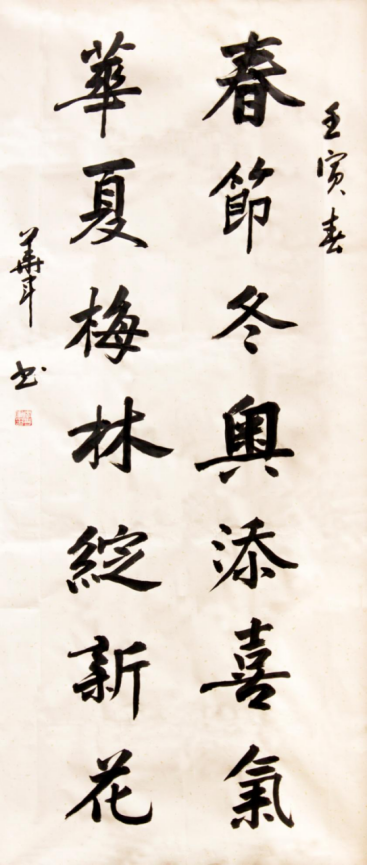 壬寅春
春節冬奥添喜氣
華夏梅林綻新花
華年书